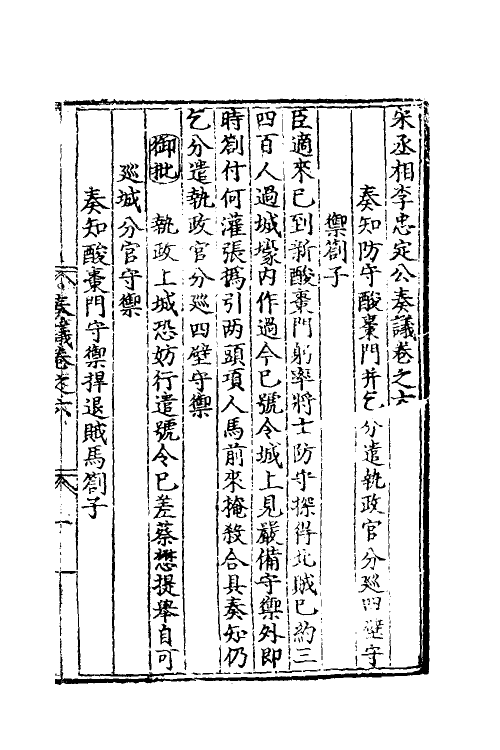 宋丞相李忠定公奏議卷之六
奏知防守酸棗門并乞分遣執政官分巡四壁守
禦劄子
臣適來已到新酸棗門躬率將士防守探得北賊已約三
四百人過城壕內作過今已號令城上見嚴備守禦外即
時劄付何灌張撝引两頭項人馬前來掩殺合具奏知仍
乞分遣執政官分巡四壁守禦
御批 執政上城恐妨行遣號令已差蔡懋提舉自可
巡城分官守禦
奏知酸棗門守禦捍退賊馬劄子
奏議卷之六
一